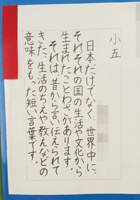 小五
日本だけでなく、世界中に、
それぞれの国の生活や文化から
生まれたことわざがあります。
それは、昔から言い伝えられて
きた、生活のちえや教えなどの
意味をもった短い言葉です。